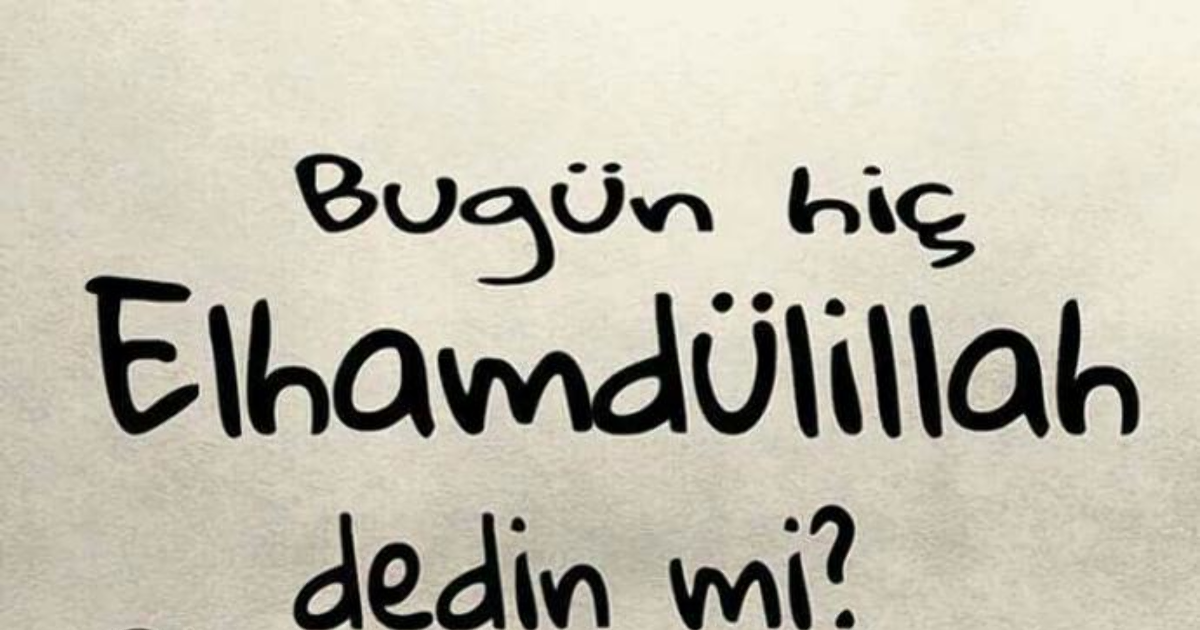 Bugün hiç
Elhamdülillah
dedin mi?